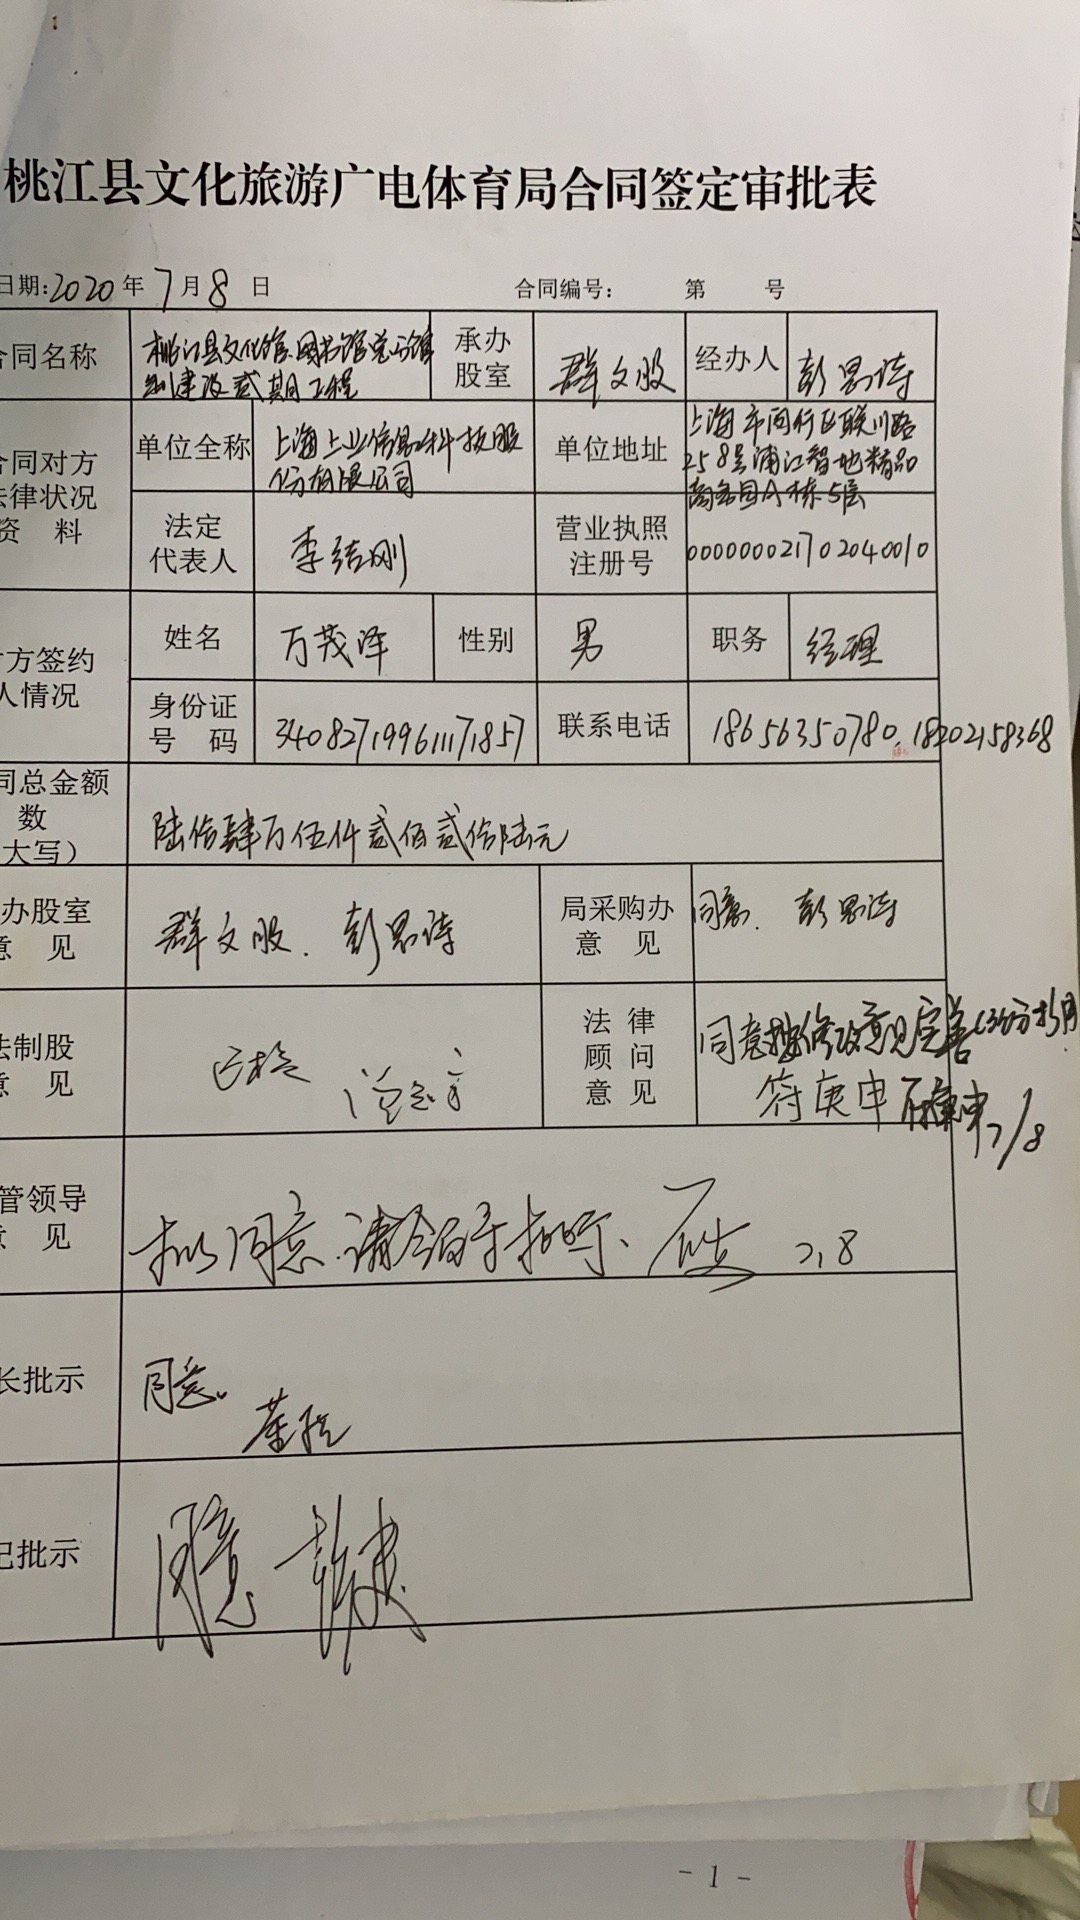 桃江县文化旅游广电体育局合同签定审批表
日期:2020年7月8日 合同编号: 第 号
合同名称 桃江县文化馆、图书馆 建设贰期工程 承办股室 群文股 经办人 彭思诗
合同对方法律状况资料
单位全称 上海上业信息科技股份有限公司 单位地址 上海市闵行区联川路258号浦江智地精品商务园A栋5层
法定代表人 李结刚 营业执照注册号 000000021702040010
对方签约人情况
姓名 万茂泽 性别 男 职务 经理
身份证号码 340827199611171857 联系电话 18656350780. 18202158368
同总金额数(大写) 陆拾肆万伍仟贰佰贰拾陆元
办股室意见 群文股. 彭思诗 局采购办意见 同意. 彭思诗
法制股意见 法律顾问意见 同意按修改意见完善 符庚申 7/8
管领导意见 拟同意.请 批示、 7.8
长批示 同意。
记批示 同意
- 1 -